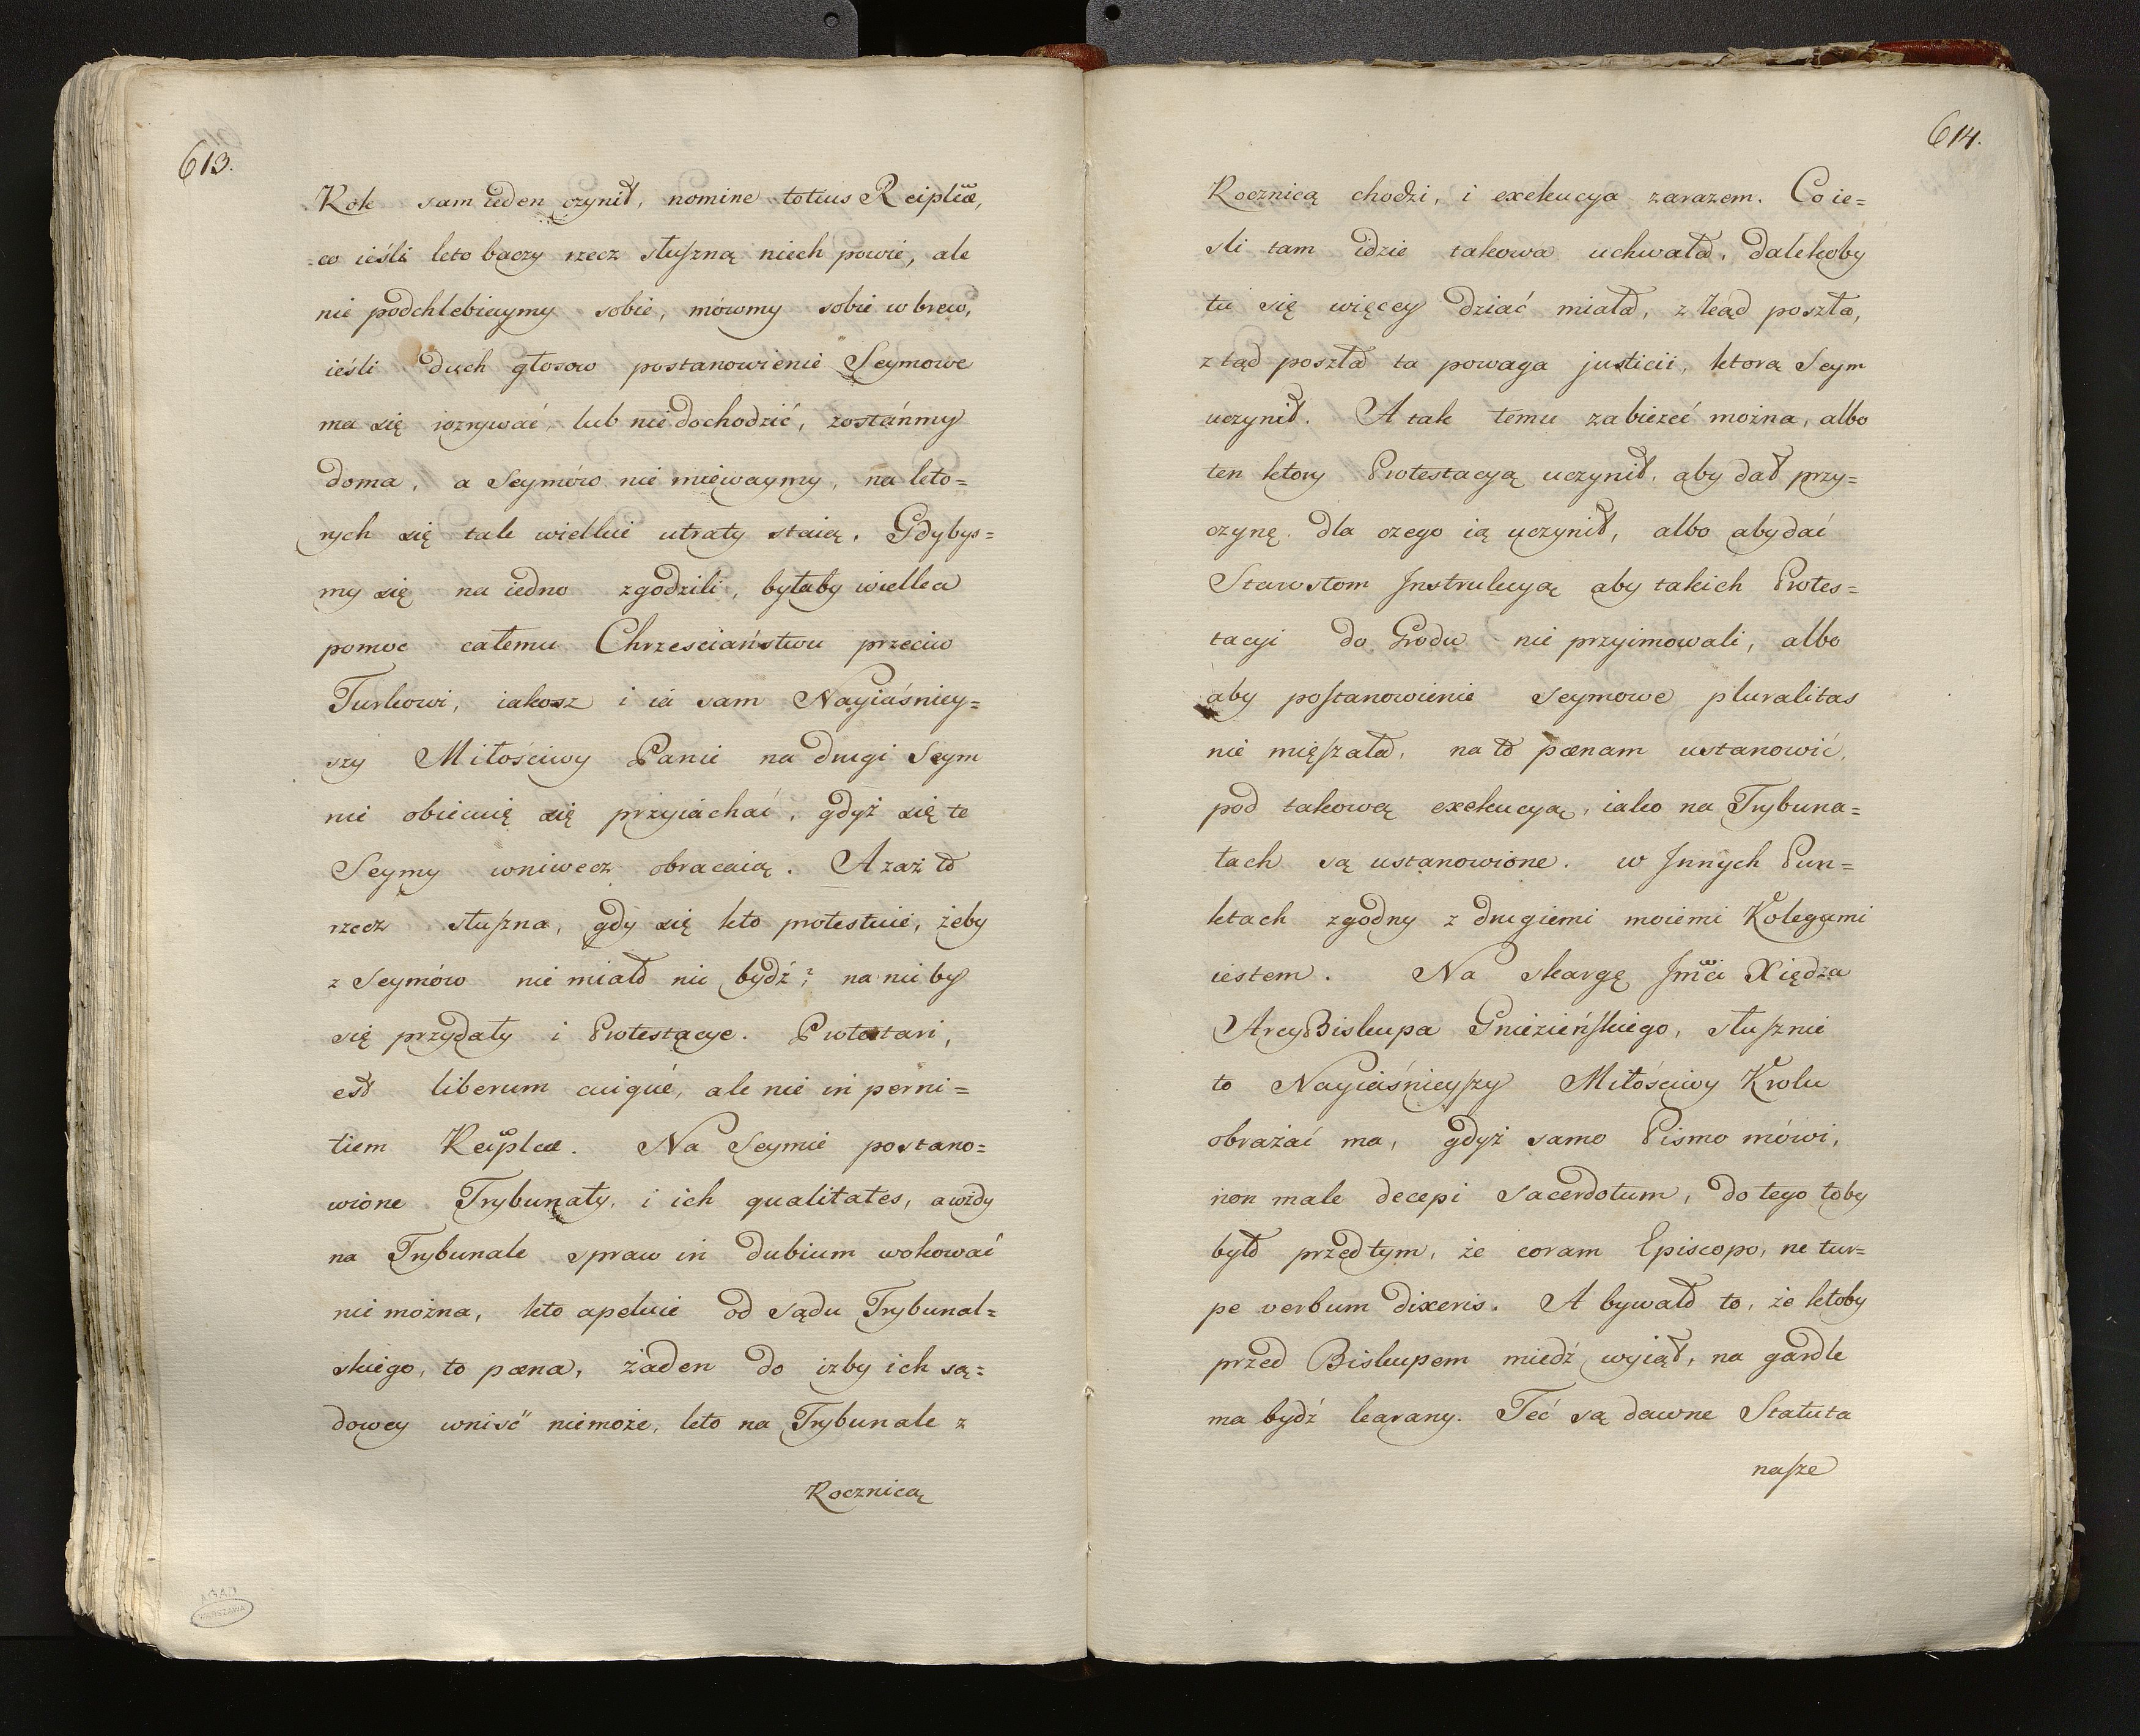 613.
Rok sam ieden czynił, nomine totius Reiplicæ,
co ieśli kto baczy rzecz słuszną niech powie, ale
nie podchlebiaymy sobie, mówmy sobie w brew,
ieśli duch głosow postanowienie Seymowe
ma się rozrywać, lub nie dochodzić, zostańmy
doma, a Seymów nie miewaymy, na kto=
rych się tak wielkie utraty staią. Gdybyś=
my się na iedno zgodzili, byłaby wielka
pomoc całemu Chrzescianstwu przeciw
Turkowi, iakosz i ia sam Nayiaśniey=
szy Miłościwy Panie na drugi Seym
nie obiecuię się przyiachać, gdyż się te
Seymy wniwecz obracaią. A zaż to
rzecz słuszna, gdy się kto protestuie, żeby
z Seymów nie miało nic bydź? na nic by
się przydały i Protestacye. Protestari,
est liberum cuique, ale nie in perni=
tiem Reiplcæ. Na Seymie postano=
wione Trybunały, i ich qualitates, a wżdy
na Trybunale spraw in dubium wokować
nie można, kto apeluie od sądu Trybunal=
skiego, to pæna, żaden do izby ich są=
dowey wniść niemoże, kto na Trybunale z
Rocznicą
614.
Rocznicą chodzi, i exekucya zarazem. Co ie=
sli tam idzie takowa uchwała, dalekoby
tu się więcey dziać miało, z kąd poszła,
z tąd poszła ta powaga justicii, ktorą Seym
uczynił. A tak temu zabieżeć można, albo
ten ktory Protestacyą uczynił, aby dał przy=
czynę dla czego ią uczynił, albo aby dać
Starostom Instrukcyą aby takich Protes=
tacyi do Grodu nie przyimowali, albo
aby postanowienie Seymowe pluralitas
nie mięszała, na to pænam ustanowić,
pod takową exekucyą, iako na Trybuna=
łach są ustanowione. w Innych Pun=
ktach zgodny z drugiemi moiemi Kolegami
iestem. Na skargę Jmci Xiędza
ArcyBiskupa Gnieźieńskiego, słusznie
to Nayiaśnieyszy Miłościwy Krolu
obrażać ma, gdyż samo Pismo mówi,
non male decepi Sacerdotum, do tego toby
było przedtym, że coram Episcopo, ne tur=
pe verbum dixeris. A bywało to, że ktoby
przed Biskupem miedź wyiął, na gardle
ma bydź karany. Teć są dawne Statuta
nasze
AGAD
WARSZAWA